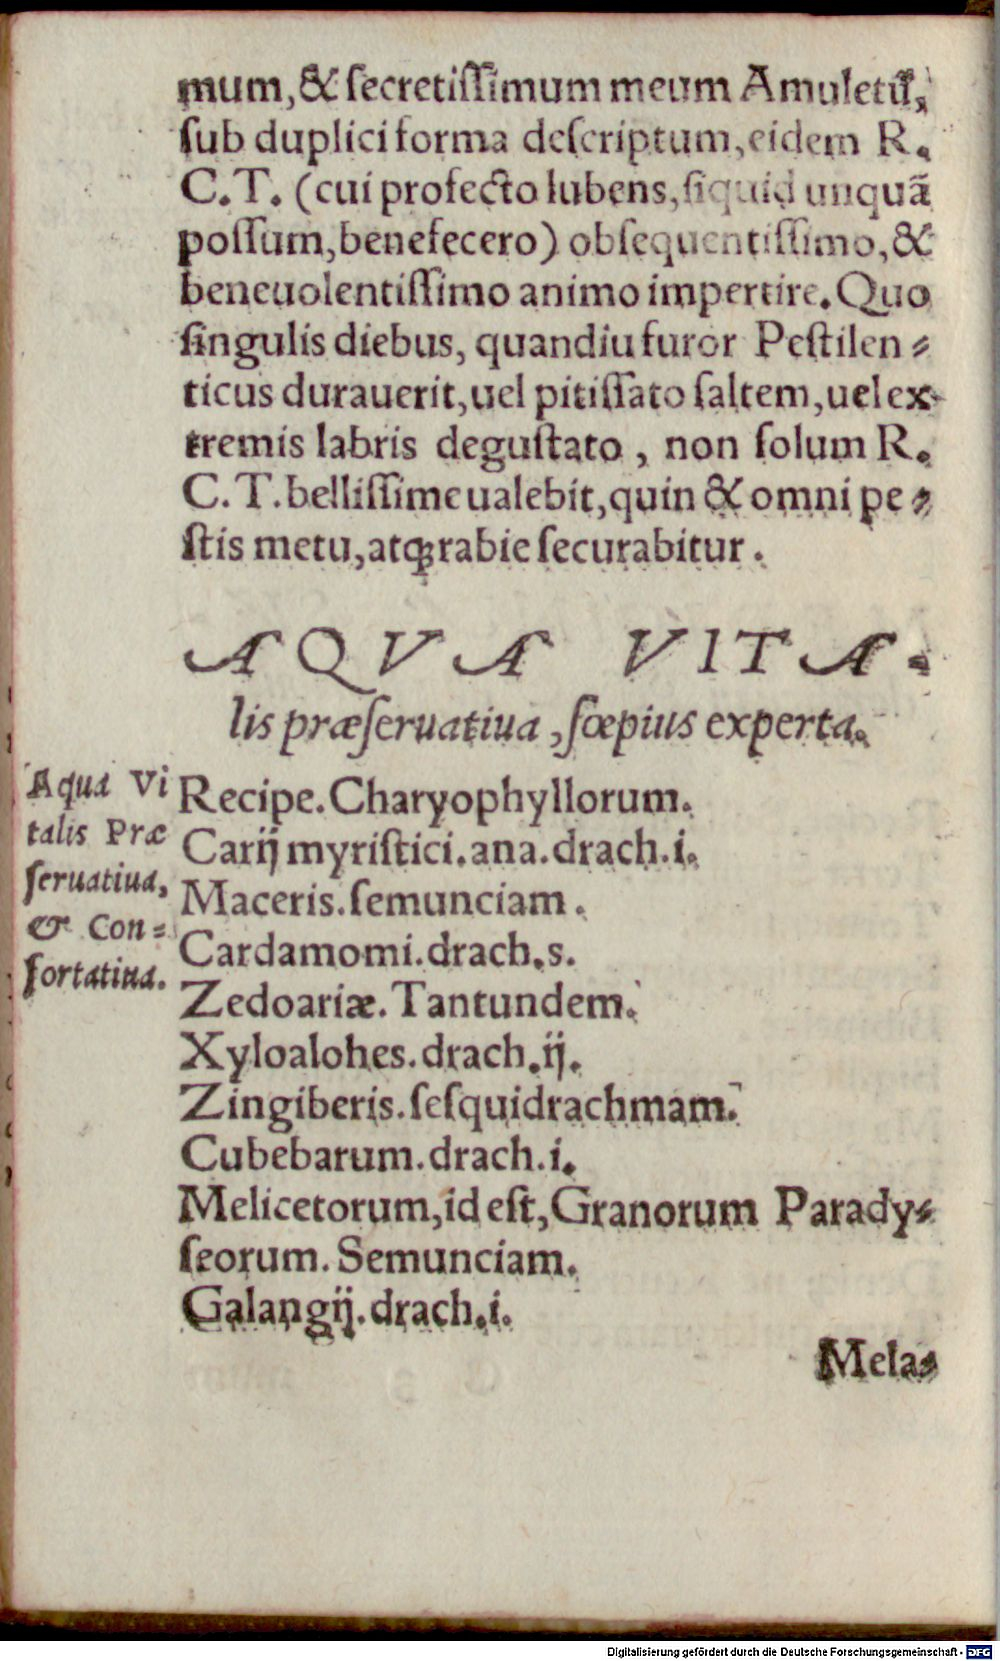 mum, & ſecretiſſimum meum Amuletũ,
ſub duplici forma deſcriptum, eidem R.
C. T. (cui profecto lubens, ſiquid unquã
poſſum, benefecero) obſequentiſſimo, &
beneuolentiſſimo animo impertire. Quo
ſingulis diebus, quandiu furor Peſtilen⸗
ticus durauerit, uel pitiſſato ſaltem, uel ex⸗
tremis labris deguſtato, non ſolum R.
C. T. belliſſime ualebit, quin & omni pe⸗
ſtis metu, atq; rabie ſecurabitur.
AQVA VITA⸗
lis præſeruatiua, ſœpius experta.
Aqua Vi
talis Præ
ſeruatiua,
& Con⸗
fortatiua.
Recipe. Charyophyllorum.
Carij myriſtici. ana. drach. i.
Maceris. ſemunciam.
Cardamomi. drach. s.
Zedoariæ. Tantundem.
Xyloalohes. drach. ij.
Zingiberis. ſeſquidrachmam.
Cubebarum. drach. i.
Melicetorum, id eſt, Granorum Parady⸗
ſeorum. Semunciam.
Galangij. drach. i.
Mela⸗
Digitalisierung gefördert durch die Deutsche Forschungsgemeinschaft - DFG